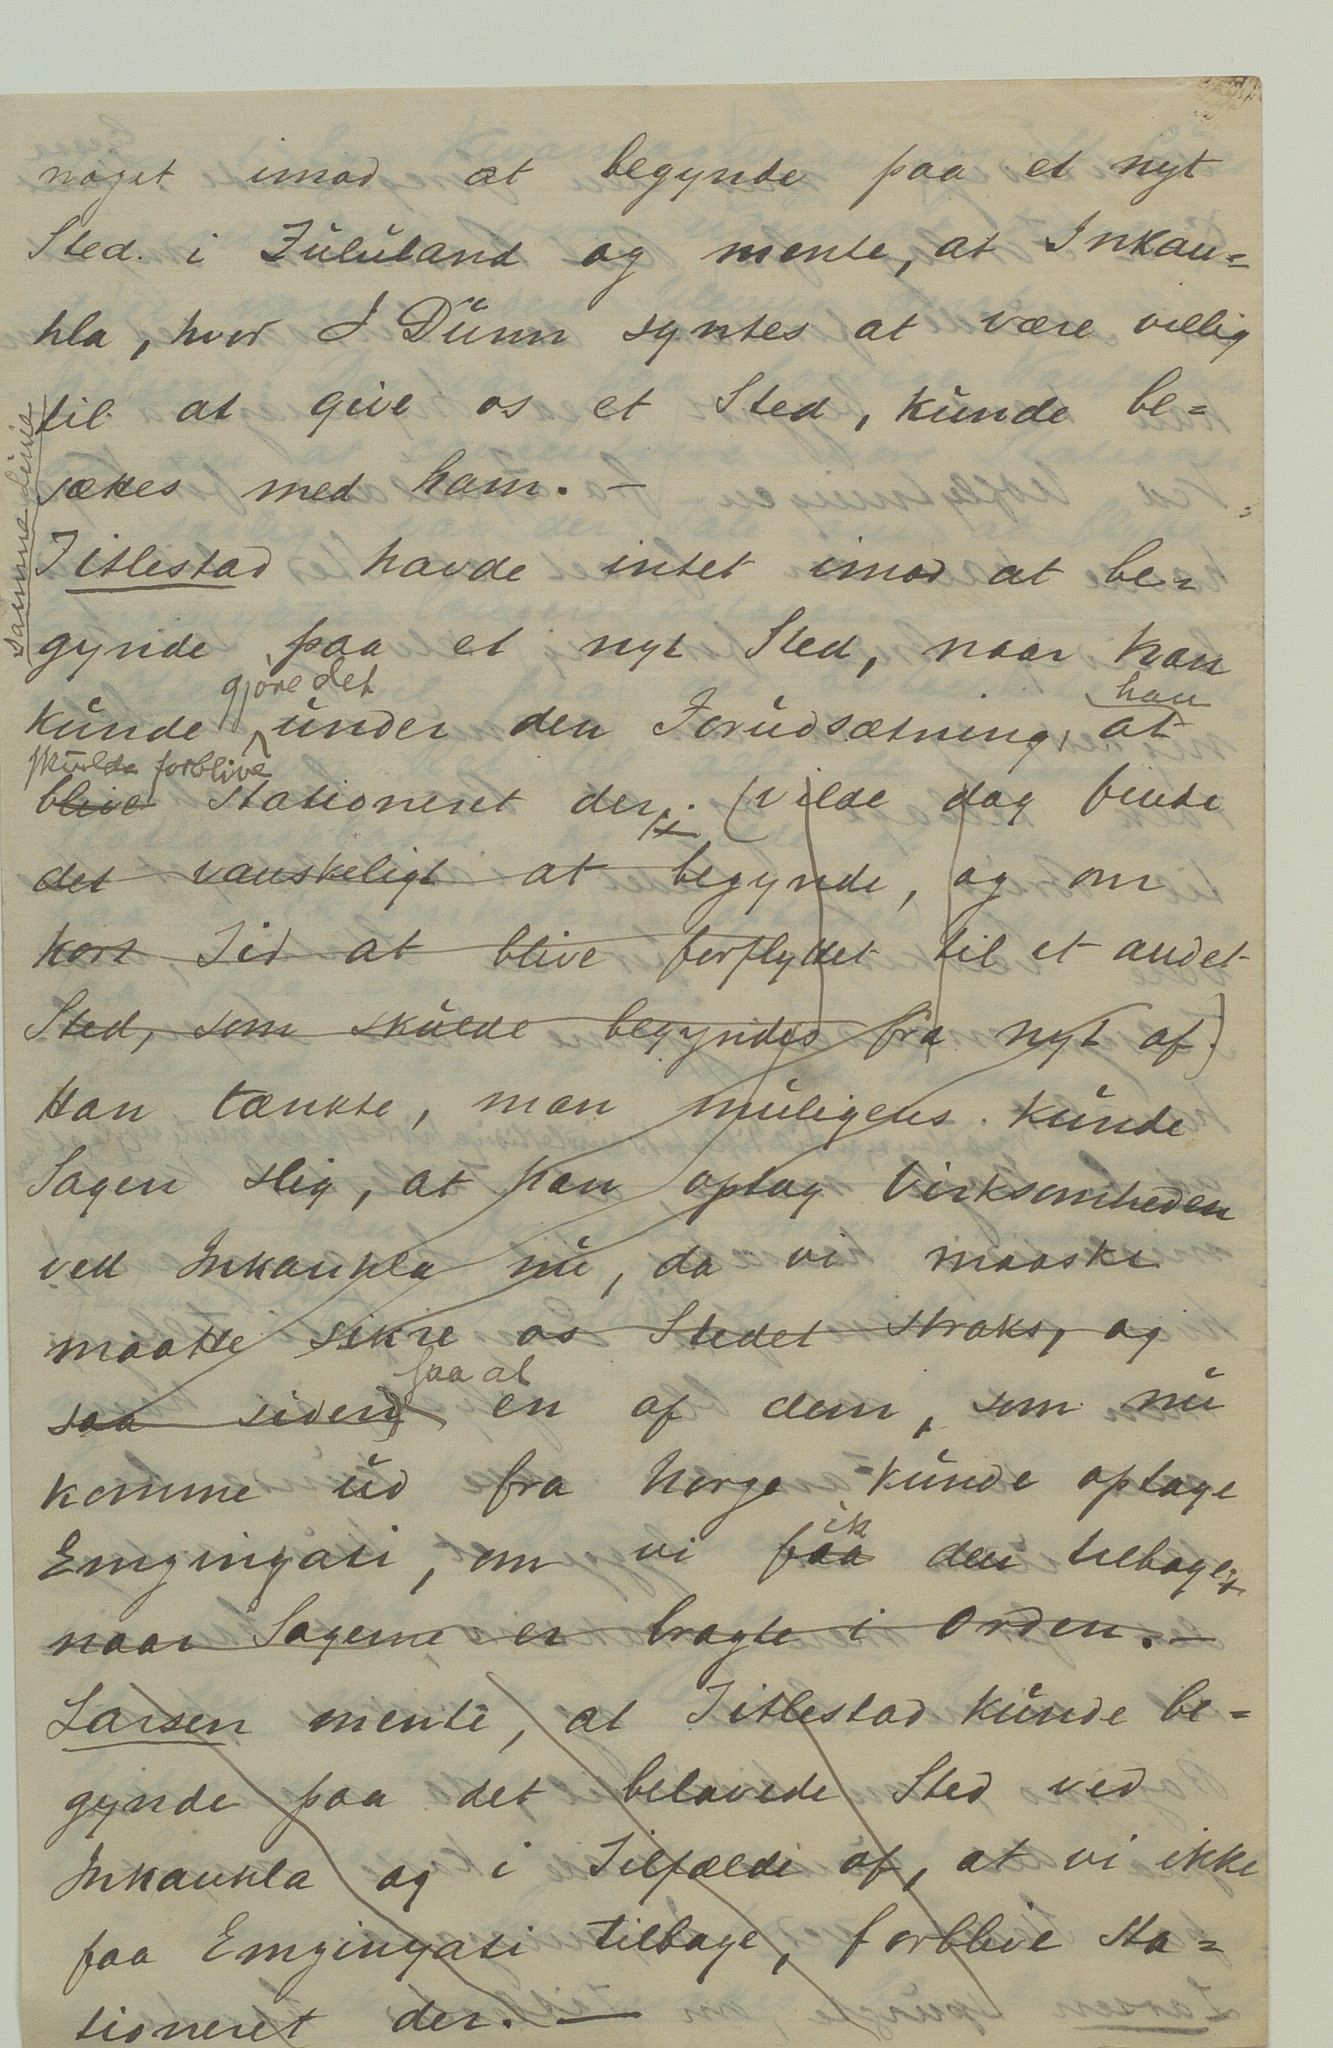 noget imod at begynde paa et nyt
Sted i Zululand og mente, at Inkau-
hla, hvor J Dunn syntes at være villig
til at give os et Sted, kunde be-
sættes med ham. –
samme Linie
Titlestad havde intet imod at be-
gynde paa et nyt Sted, naar han
gjøre det
han
kunde under den Forudsætning, at
skulde forblive
blive stationeret der. (vilde dog finde
det vanskeligt at begynde, og om
kort Tid at blive forflyttet til et andet
Sted, som skulde begyndes fra nyt af.)
Han tænkte, man muligens kunde
Sagen slig, at han optog Virksomheden
ved Inkauhla nu, da vi maaske
maatte sikre os Stedet straks, og
saa at
saa siden en af dem, som nu
komme ud fra Norge kunde optage
ik
Emzingati, om vi faa den tilbage
naar Sagerne er bragte i Orden. –
Larsen mente, at Titlestad kunde be-
gynde paa det belovede Sted ved
Inkauhla og i Tilfælde af, at vi ikke
faa Emzingati tilbage, forblive sta-
tioneret der. –